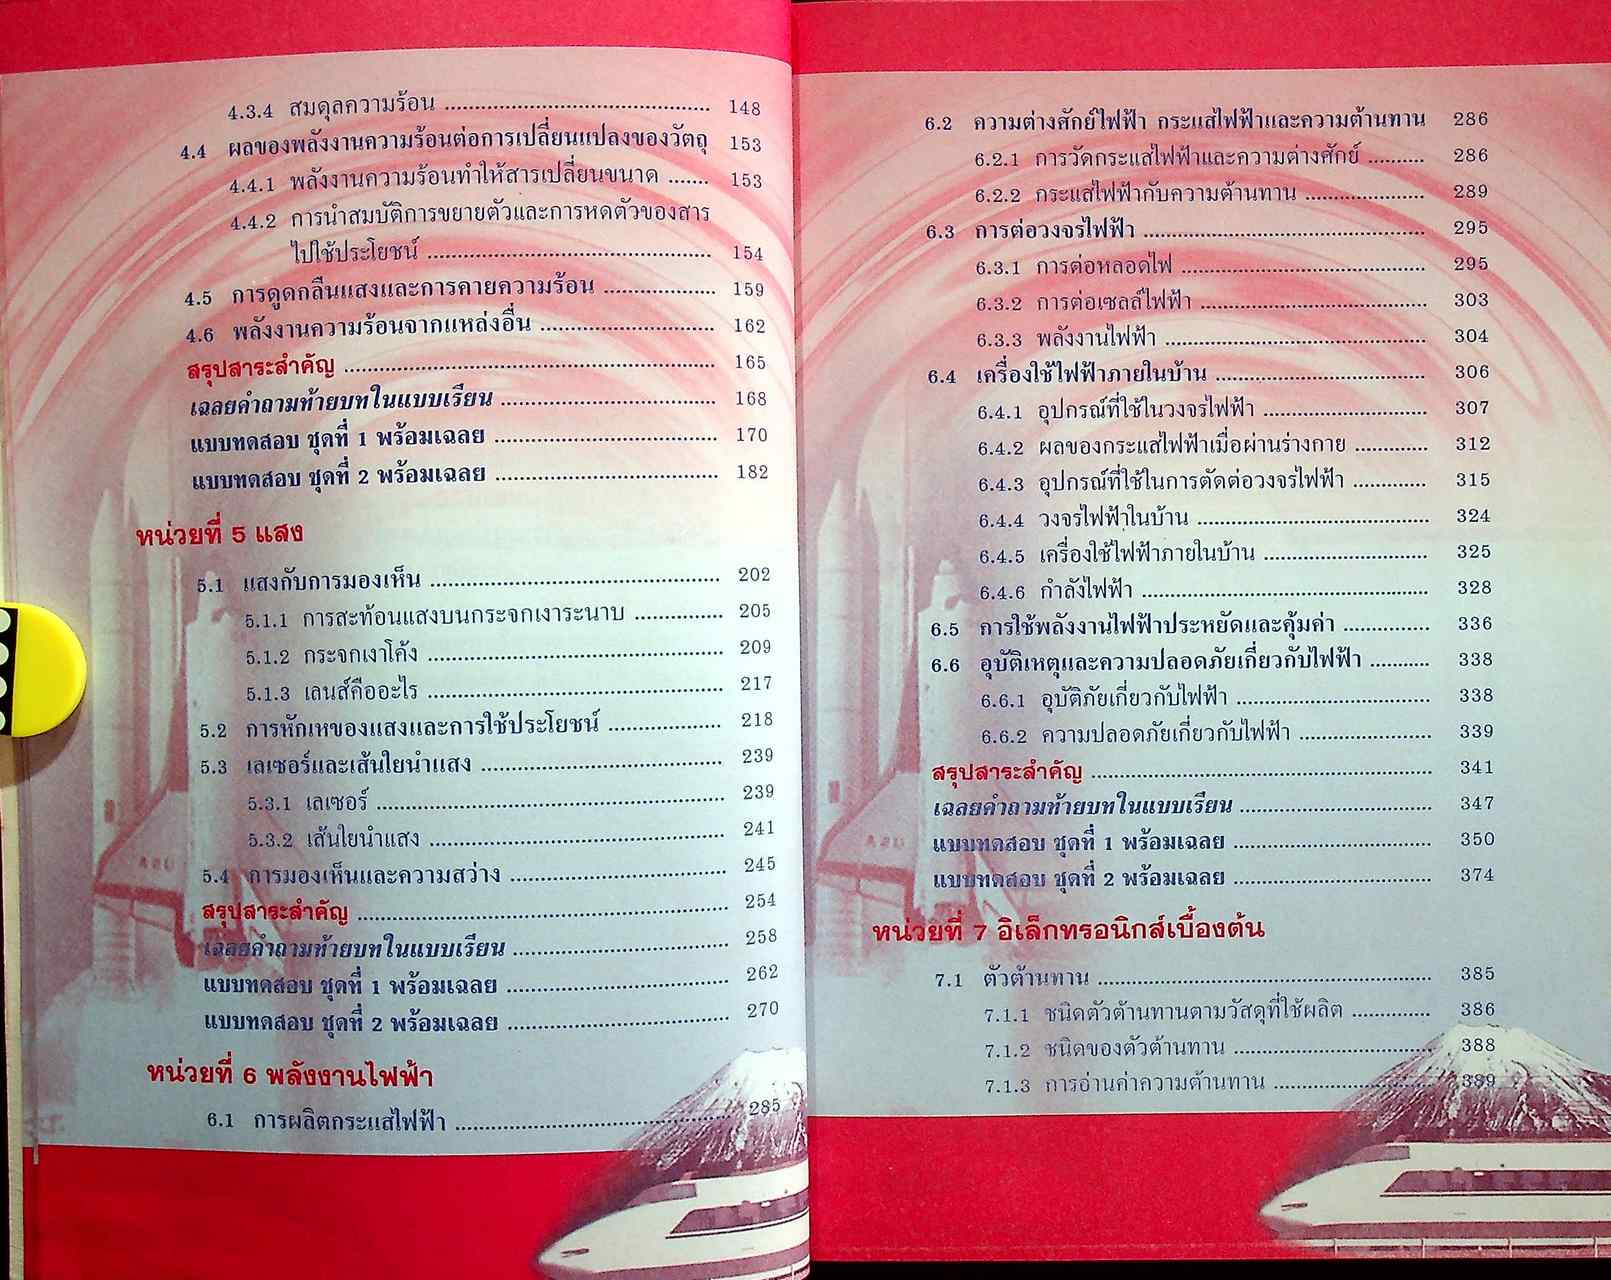 4.3.4 สมดุลความร้อน ........................................ 148
4.4 ผลของพลังงานความร้อนต่อการเปลี่ยนแปลงของวัตถุ 153
4.4.1 พลังงานความร้อนทำให้สารเปลี่ยนขนาด ....... 153
4.4.2 การนำสมบัติการขยายตัวและการหดตัวของสาร
ไปใช้ประโยชน์ ........................................ 154
4.5 การดูดกลืนแสงและการคายความร้อน ................. 159
4.6 พลังงานความร้อนจากแหล่งอื่น .......................... 162
สรุปสาระสำคัญ ........................................ 165
เฉลยคำถามท้ายบทในแบบเรียน ................................ 168
แบบทดสอบ ชุดที่ 1 พร้อมเฉลย ................................ 170
แบบทดสอบ ชุดที่ 2 พร้อมเฉลย ................................ 182
หน่วยที่ 5 แสง
5.1 แสงกับการมองเห็น ........................................ 202
5.1.1 การสะท้อนแสงบนกระจกเงาระนาบ ............. 205
5.1.2 กระจกเงาโค้ง ........................................ 209
5.1.3 เลนส์คืออะไร ........................................ 217
5.2 การหักเหของแสงและการใช้ประโยชน์ ................. 218
5.3 เลเซอร์และเส้นใยนำแสง ................................ 239
5.3.1 เลเซอร์ ........................................ 239
5.3.2 เส้นใยนำแสง ........................................ 241
5.4 การมองเห็นและความสว่าง ................................ 245
สรุปสาระสำคัญ ........................................ 254
เฉลยคำถามท้ายบทในแบบเรียน ................................ 258
แบบทดสอบ ชุดที่ 1 พร้อมเฉลย ................................ 262
แบบทดสอบ ชุดที่ 2 พร้อมเฉลย ................................ 270
หน่วยที่ 6 พลังงานไฟฟ้า
6.1 การผลิตกระแสไฟฟ้า ........................................ 285
6.2 ความต่างศักย์ไฟฟ้า กระแสไฟฟ้าและความต้านทาน 286
6.2.1 การวัดกระแสไฟฟ้าและความต่างศักย์ .......... 286
6.2.2 กระแสไฟฟ้ากับความต้านทาน .................... 289
6.3 การต่อวงจรไฟฟ้า ........................................ 295
6.3.1 การต่อหลอดไฟ ........................................ 295
6.3.2 การต่อเซลล์ไฟฟ้า ................................ 303
6.3.3 พลังงานไฟฟ้า ........................................ 304
6.4 เครื่องใช้ไฟฟ้าภายในบ้าน ................................ 306
6.4.1 อุปกรณ์ที่ใช้ในวงจรไฟฟ้า ........................ 307
6.4.2 ผลของกระแสไฟฟ้าเมื่อผ่านร่างกาย ............. 312
6.4.3 อุปกรณ์ที่ใช้ในการตัดต่อวงจรไฟฟ้า ............. 315
6.4.4 วงจรไฟฟ้าในบ้าน ................................ 324
6.4.5 เครื่องใช้ไฟฟ้าภายในบ้าน ........................ 325
6.4.6 กำลังไฟฟ้า ........................................ 328
6.5 การใช้พลังงานไฟฟ้าประหยัดและคุ้มค่า ............... 336
6.6 อุบัติเหตุและความปลอดภัยเกี่ยวกับไฟฟ้า .......... 338
6.6.1 อุบัติภัยเกี่ยวกับไฟฟ้า ............................ 338
6.6.2 ความปลอดภัยเกี่ยวกับไฟฟ้า .................... 339
สรุปสาระสำคัญ ........................................ 341
เฉลยคำถามท้ายบทในแบบเรียน ................................ 347
แบบทดสอบ ชุดที่ 1 พร้อมเฉลย ................................ 350
แบบทดสอบ ชุดที่ 2 พร้อมเฉลย ................................ 374
หน่วยที่ 7 อิเล็กทรอนิกส์เบื้องต้น
7.1 ตัวต้านทาน ........................................ 385
7.1.1 ชนิดตัวต้านทานตามวัสดุที่ใช้ผลิต ............. 386
7.1.2 ชนิดของตัวต้านทาน ............................ 388
7.1.3 การอ่านค่าความต้านทาน ........................ 389